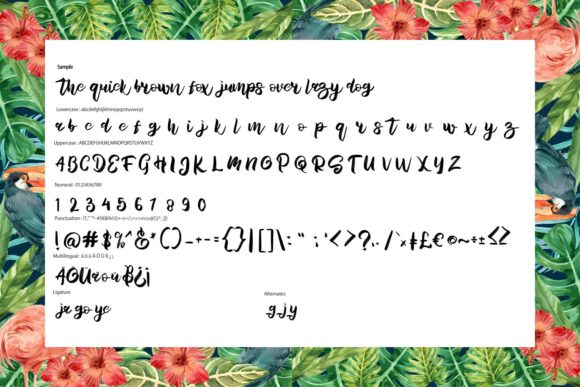 Sample
the quick brown fox jumps over lazy dog
Lowercase : abcdefghijklmnopqrstuvwxyz
a b c d e f g h i j k l m n o p q r s t u v w x y z
Uppercase : ABCDEFGHIJKLMNOPQRSTUVWXYZ
ABCDEFGHIJKLMNOPQRSTUVWXYZ
Numeral : 0123456789
1 2 3 4 5 6 7 8 9 0
Punctuation :
!@#$%^&*()_+-={}|[]\:";'<>?,./
Multilingual :
Ligature
Alternates
jr go ye
g j y